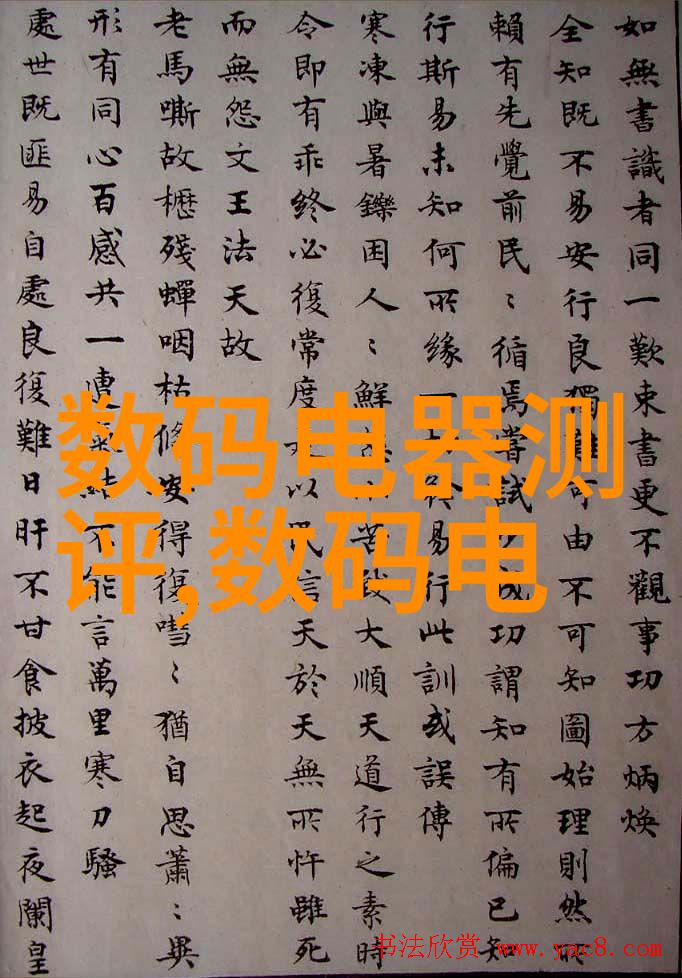 如無書識者同一歎束書更不觀事功方炳煥
全知既不易安行良獨難可由不可知圖始理則然所
賴有先覺前民〻循焉嘗試成功謂知有所偏已知
行斯易未知何所緣易行此訓或誤傳
寒凍與暑鑠困人〻鮮苦大順天道行之素時
令即有乖終必復常度以民言天於天無所忤雖死
而無怨文王法天故
老馬嘶故櫪殘蟬咽枯條安得復〻猶自思蕭〻異
形有同心百感共一結不能言萬里寒刀騷
處世既匪易自處良復難日旰不甘食披衣起夜闌皇
数码电器测
评,数码电
书法欣赏 www.yac8.com